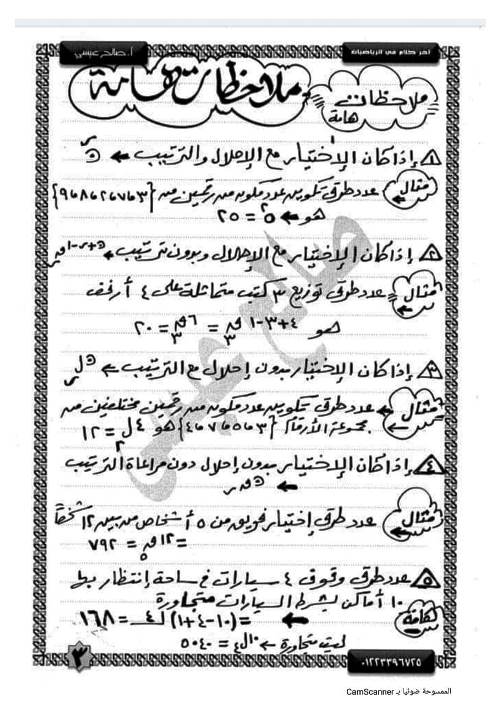 آخر كلام في الرياضيات
أ. صالح عيسى
ملاحظات هامة
ملاحظات هامة
١ إذا كان الإختيار مع الإحلال والترتيب ← ن^ر
مثال عدد طرق تكوين عدد مكون من رقمين من {٣، ٦، ٧، ٨، ٩}
هو ← ٥^٢ = ٢٥
٢ إذا كان الإختيار مع الإحلال وبدون ترتيب ← ن+ر-١ق ر
مثال عدد طرق توزيع ٣ كتب متماثلة على ٤ أرفف
هو ٤+٣-١ق٣ = ٦ق٣ = ٢٠
٣ إذا كان الإختيار بدون إحلال مع الترتيب ← نل ر
مثال عدد طرق تكوين عدد مكون من رقمين مختلفين من
مجموعة الأرقام {٣، ٥، ٧، ٤} هو ٤ل٢ = ١٢
٤ إذا كان الإختيار بدون إحلال دون مراعاة الترتيب
← نق ر
مثال عدد طرق إختيار فريق من ٥ أشخاص من بين ١٢ شخصاً
= ١٢ق٥ = ٧٩٢
٥ عدد طرق وقوف ٤ سيارات في ساحة إنتظار بها
١٠ أماكن بشرط السيارات متجاورة
هامة ← = (١٠-٤+١) ٤ = ١٦٨
ليست متجاورة ← ١٠ل٤ = ٥٠٤٠
٣
٠١٢٢٣٣٩٦٧٢٥
صالح عيسى
الممسوحة ضوئيا بـ CamScanner